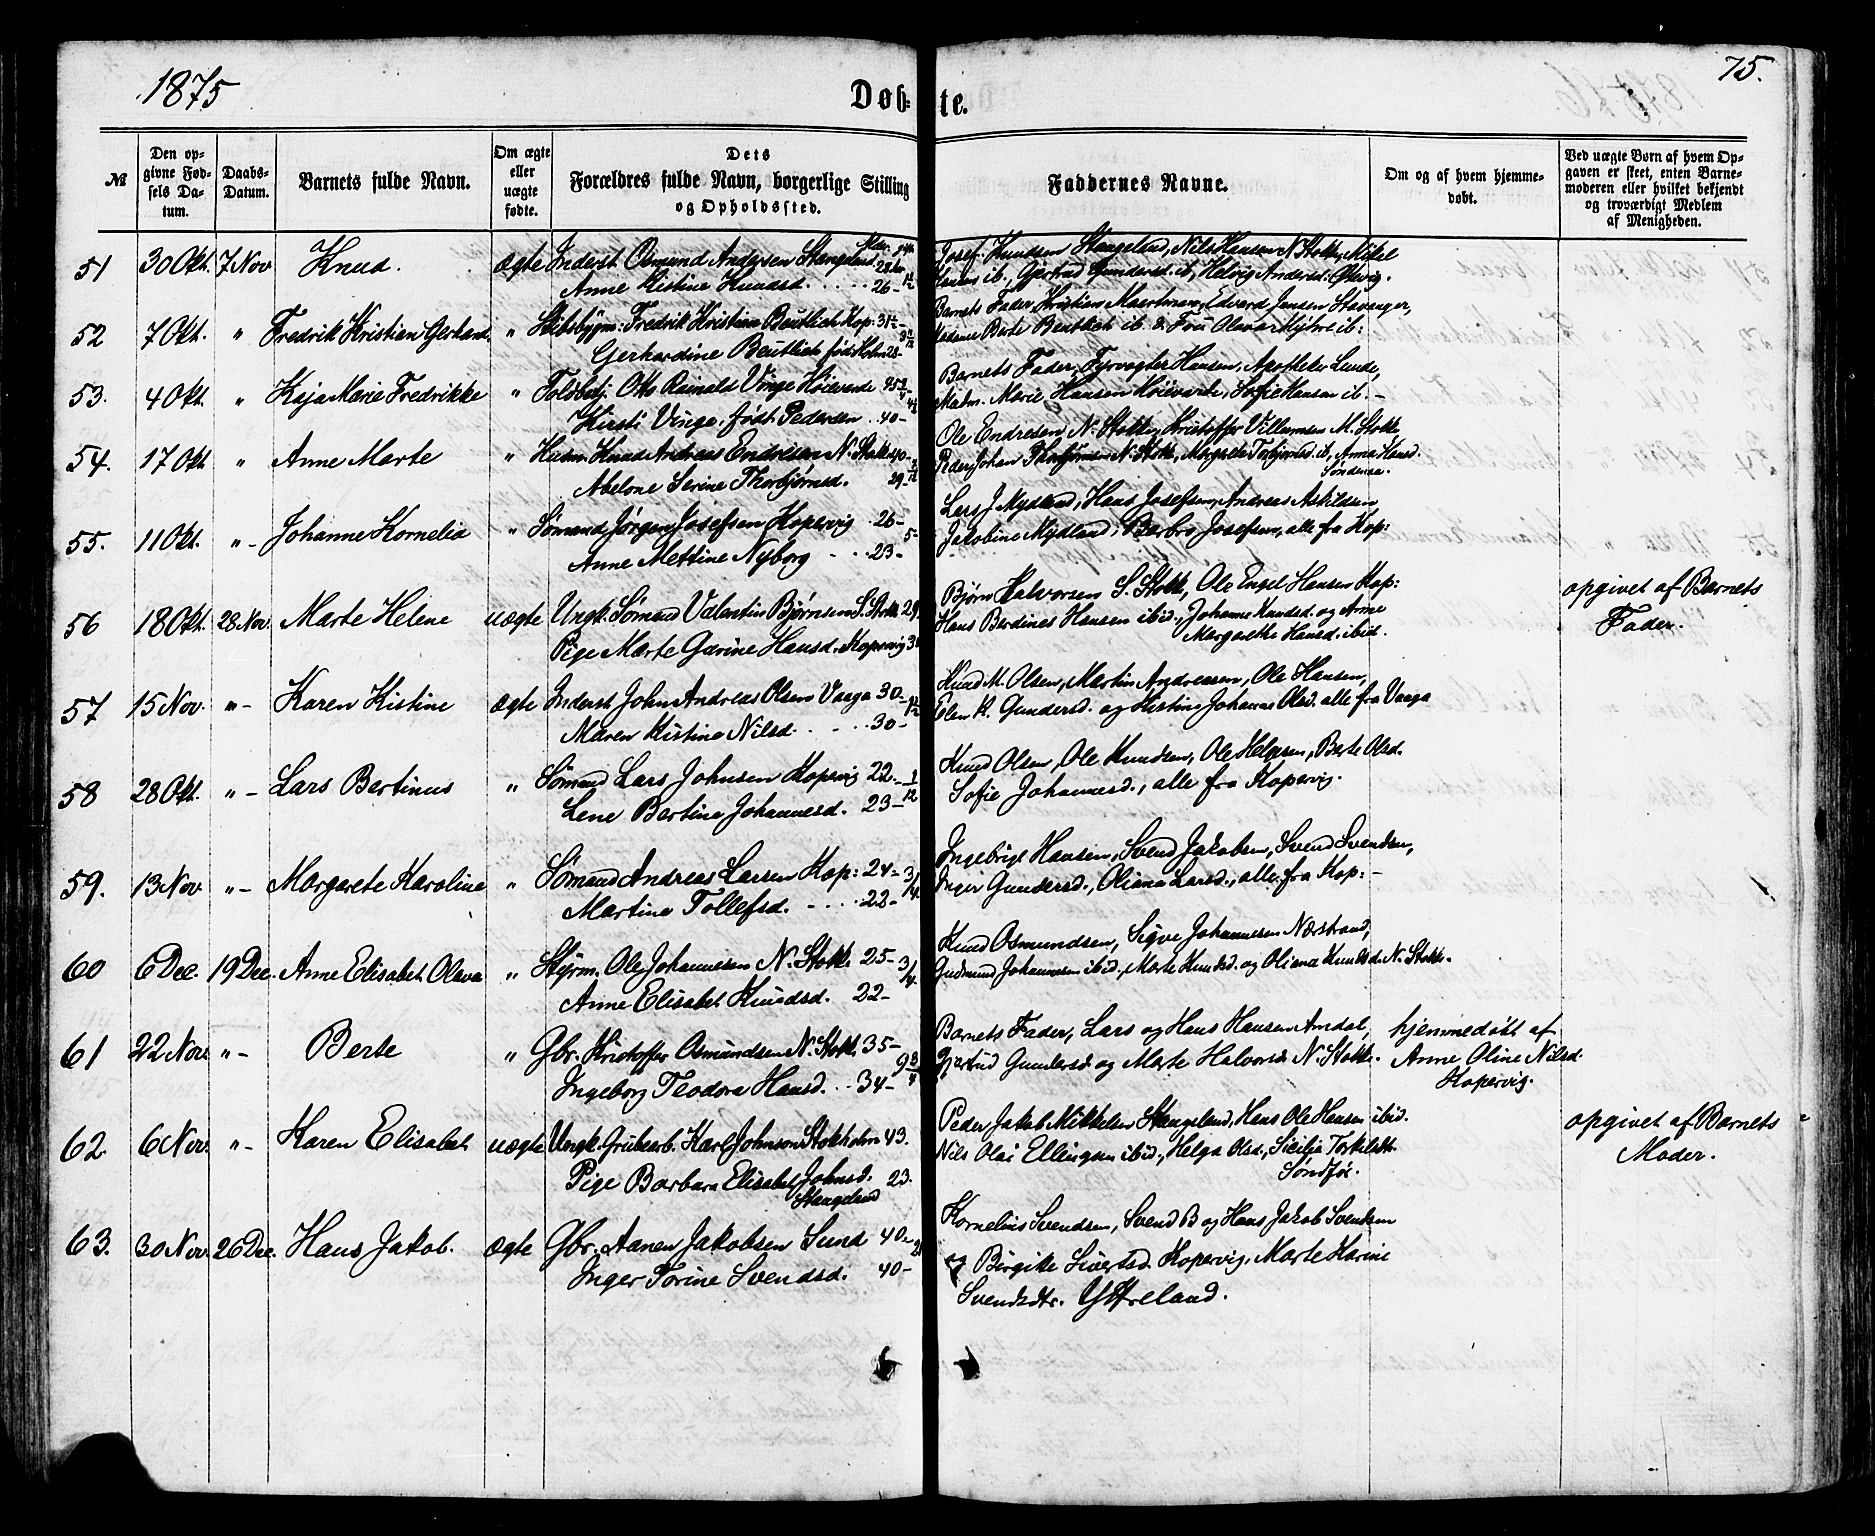 1875
Döb-te.
75.
№
Den op-
givne Fød-
sels Da-
tum.
Daabs-
Datum.
Barnets fulde Navn.
Om ægte
eller
uægte
fødte.
Dets
Forældres fulde Navn, borgerlige Stilling
og Opholdssted.
Faddernes Navne.
Om og af hvem hjemme-
døbt.
Ved uægte Børn af hvem Op-
gaven er skeet, enten Barne-
moderen eller hvilket bekjendt
og troværdigt Medlem
af Menigheden.
51 30 Okt. 7 Nov Knud. ægte Inderst Osmund Andersen Stangeland
Anne Kistine Knudsd. 26
Josef Knudsen Stangeland, Nils Hansen N. Stokke, Mikel
Hansen ib, Gjertrud Gundersd. ib, Helvig Andersd.
52 7 Okt. " Fredrik Kristian Gerhard " Skibsbygm: Fredrik Kristian Beutlich Kop: 31½
Gerhardine Beutlich født Holm 28
Barnets Fader, Kristian Maartman, Edvard Jensen Stavanger,
Madame Berte Beutlich ib & Frü Olava Myhre ib:
53. 4 Okt. " Kaja Marie Fredrikke " Toldbetj. Otto Reinald Vinge Höievarde
Kirsti Vinge, født Pedersen 40-
Barnets Fader, Fyrvogter Hansen, Apotheker Lunde,
Madm. Marie Hansen Höievarde, Sofie Hansen ib. -
54. 17 Okt " Anne Marte " Husm. Knud Andreas Endresen N. Stokke 40-
Abelone Serine Thorbjørnsd. 29-
Ole Endresen N. Stokke, Kristoffer Villumsen M. Stokke
Peder Johan Thorbjørnsen N. Stokk, Margrete Torbjørnsd. ib, Anna Hansd.
Søndenaa.
55. 11 Okt. " - Johanne Kornelia " Sömand Jörgen Josefsen Kopervig 26- 5-
Anne Mettine Nyborg - . . 23-
Lars J. Mydland, Hans Josefsen, Andreas Askildsen
Jakobine Mydland, Barbro Josefsen, alle fra Kop:
56 18 Okt. 28 Nov. Marte Helene uægte Ungk. Sömand Valentin Björnsen S. Stokk. 29
Pige Marte Garine Hansd. Kopervig
Bjørn Halvorsen S. Stokk, Ole Engel Hansen Kop:
Hans Berdines Hansen ibid., Johanne Knudsd. og Anne
Margrethe Hansd. ibid.
opgivet af Barnets
Fader.
57 15 Nov. " - Karen Kistine ægte Inderst John Andreas Olsen Vaaga 30-
Maren Kistine Nilsd. . . . . 30-
Knud M. Olsen, Martin Andreasen, Ole Hansen,
Elen K. Gundersd. og Kistine Johanne Olsd. alle fra Vaaga
58 28 Okt. " - Lars Bertinus " Sömand Lars Johnsen Kopervig 22 - 1/12
Lene Bertine Johannesd. 23-
Knud Olsen, Ole Knudsen, Ole Helgesen, Berte Olsd.
Sofie Johannesd., alle fra Kopervig.
59. 13 Nov " - Margrete Karoline " Sömand Andreas Larsen Kop: 24- 3/4
Martine Tollefsd. - . . . 22-
Ingebrigt Hansen, Svend Jakobsen, Svend Svendsen,
Inger Gundersd., Oliana Larsd., alle fra Kop: -
60 6 Dec. 19 Dec. Anne Elisabet Olava " Styrm. Ole Johannesen N. Stokk. 25- 3/4
Anne Elisabet Knudsd. 22-
Knud Osmundsen, Sigve Johannesen Nærstrand,
Gudmund Johannesen ibid., Marte Knudsd. og Oliana Knudsd. N. Stokk.
61 22 Nov. " - Berte " Gbr. Kristoffer Osmundsen N. Stokk. 35- 9 3/4
Ingeborg Teodora Hansd. . . 34-
Barnets Fader, Lars og Hans Hansen Amdal,
Gjertrud Gundersd. og Marte Halvorsd. N. Stokk.
hjemmedøbt af
Anne Oline Nilsd.
Kopervig.
62. 6 Nov. " - Karen Elisabet uægte Ungk. Grubearb. Karl Johnson Stokholm 43.
Pige Barbara Elisabet Johnsd. 23.
Stangeland
Peder Jakob Mikkelsen Stangeland, Hans Ole Hansen ibid.
Nils Olai Ellingsen ibid., Helga Olsd., Sicilia Torkilsdt.
Søndføi.
opgivet af Barnets
Moder.
63. 30 Nov. 26 Dec. Hans Jakob. ægte Gbr. Aanen Jakobsen Sund 40 - 2
Inger Torine Svendsd. 40-
Kornelius Svendsen, Svend B og Hans Jakob Svendsen
og Birgitte Sivertsd. Kopervig, Marte Karine
Svendsdtr. Ystreland.